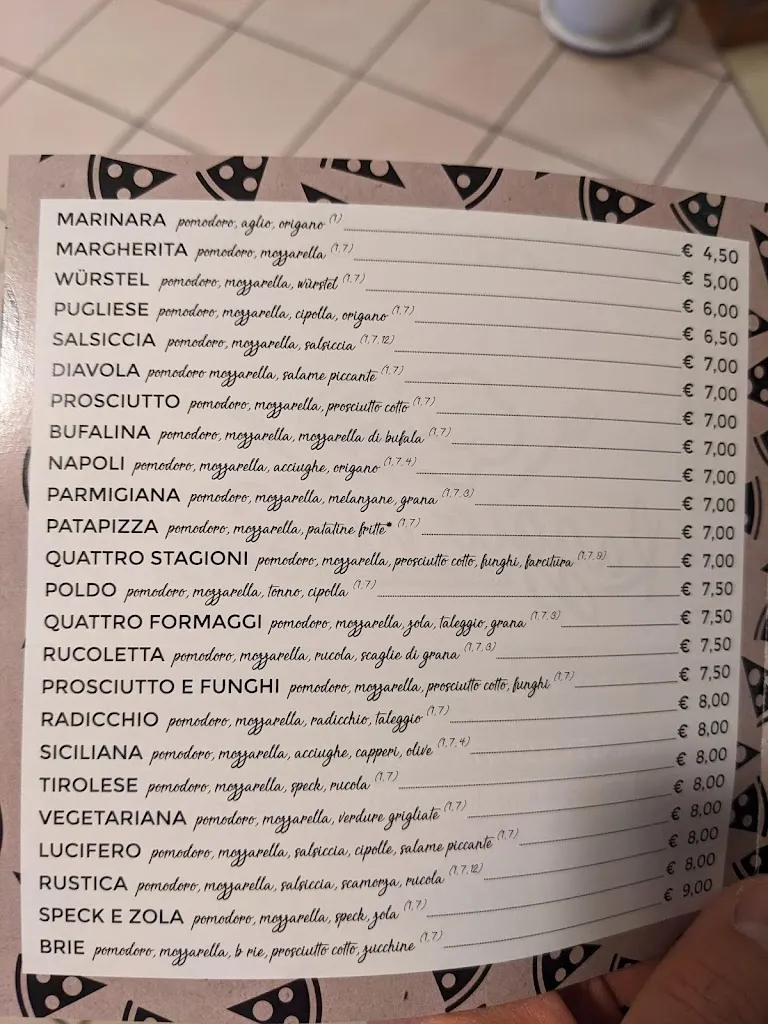 MARINARA pomodoro, aglio, origano (1) € 4,50
MARGHERITA pomodoro, mozzarella (1,7) € 5,00
WÜRSTEL pomodoro, mozzarella, würstel (1,7) € 6,00
PUGLIESE pomodoro, mozzarella, cipolla, origano (1,7) € 6,50
SALSICCIA pomodoro, mozzarella, salsiccia (1,7,12) € 7,00
DIAVOLA pomodoro mozzarella, salame piccante (1,7) € 7,00
PROSCIUTTO pomodoro, mozzarella, prosciutto cotto (1,7) € 7,00
BUFALINA pomodoro, mozzarella, mozzarella di bufala (1,7) € 7,00
NAPOLI pomodoro, mozzarella, acciughe, origano (1,7,4) € 7,00
PARMIGIANA pomodoro, mozzarella, melanzane, grana (1,7,3) € 7,00
PATAPIZZA pomodoro, mozzarella, patatine fritte* (1,7) € 7,00
QUATTRO STAGIONI pomodoro, mozzarella, prosciutto cotto, funghi, farcitura (1,7,9) € 7,00
POLDO pomodoro, mozzarella, tonno, cipolla (1,7) € 7,50
QUATTRO FORMAGGI pomodoro, mozzarella, zola, taleggio, grana (1,7,3) € 7,50
RUCOLETTA pomodoro, mozzarella, rucola, scaglie di grana (1,7,3) € 7,50
PROSCIUTTO E FUNGHI pomodoro, mozzarella, prosciutto cotto, funghi (1,7) € 7,50
RADICCHIO pomodoro, mozzarella, radicchio, taleggio (1,7) € 8,00
SICILIANA pomodoro, mozzarella, acciughe, capperi, olive (1,7,4) € 8,00
TIROLESE pomodoro, mozzarella, speck, rucola (1,7) € 8,00
VEGETARIANA pomodoro, mozzarella, verdure grigliate (1,7) € 8,00
LUCIFERO pomodoro, mozzarella, salsiccia, cipolle, salame piccante (1,7) € 8,00
RUSTICA pomodoro, mozzarella, salsiccia, scamorza, rucola (1,7,12) € 8,00
SPECK E ZOLA pomodoro, mozzarella, speck, zola (1,7) € 8,00
BRIE pomodoro, mozzarella, b rie, prosciutto cotto, zucchine (1,7) € 9,00